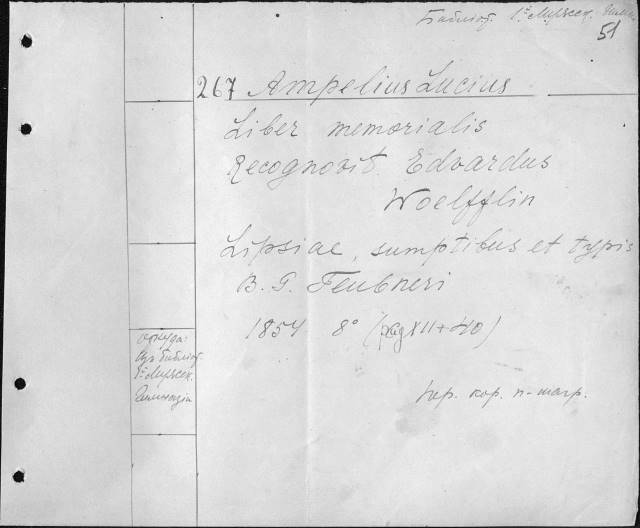 Библіот. 1ой Мужск. Гимн.
51
267 Ampelius Lucius
Liber memorialis
Recognovit Edvardus
Woelfflin
Lipsiae, sumptibus et typis
B. G. Teubneri
1854 8° (pag XII+40)
откуда:
Изъ Библіот.
1ой Мужск.
Гимназіи
кор. п-магр.